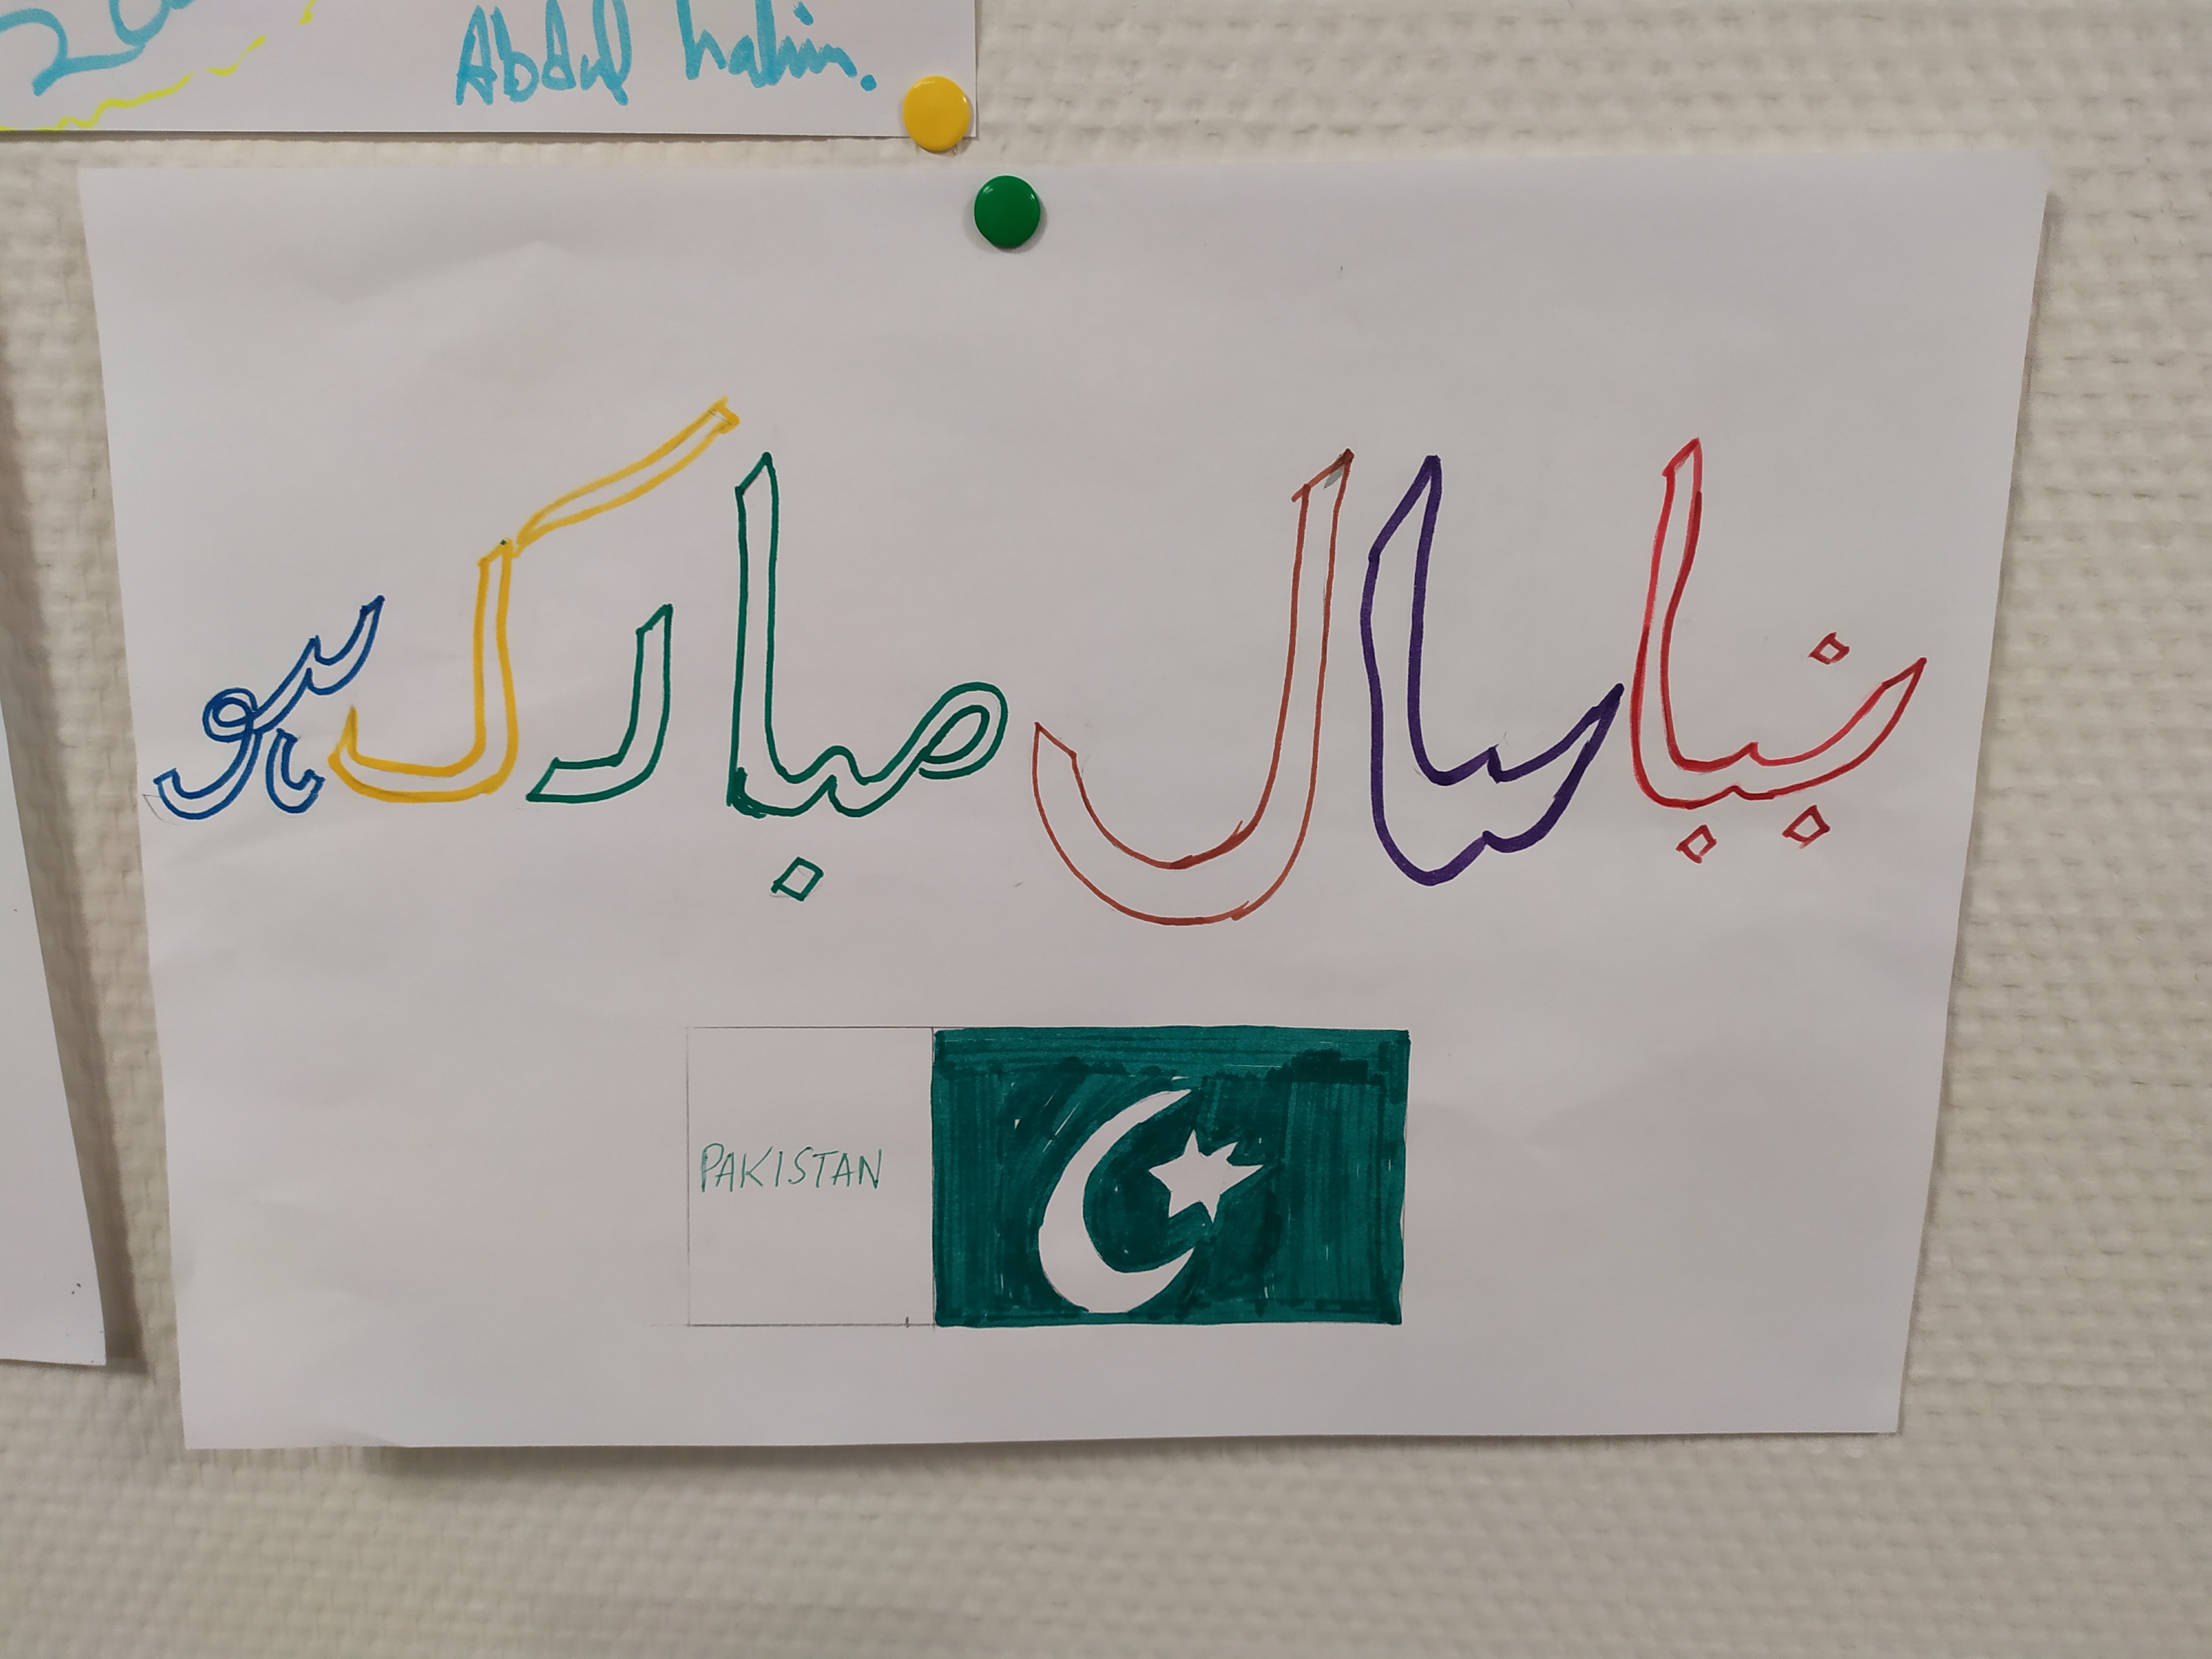 Abdul halim.
نیا سال مبارک ہو
PAKISTAN